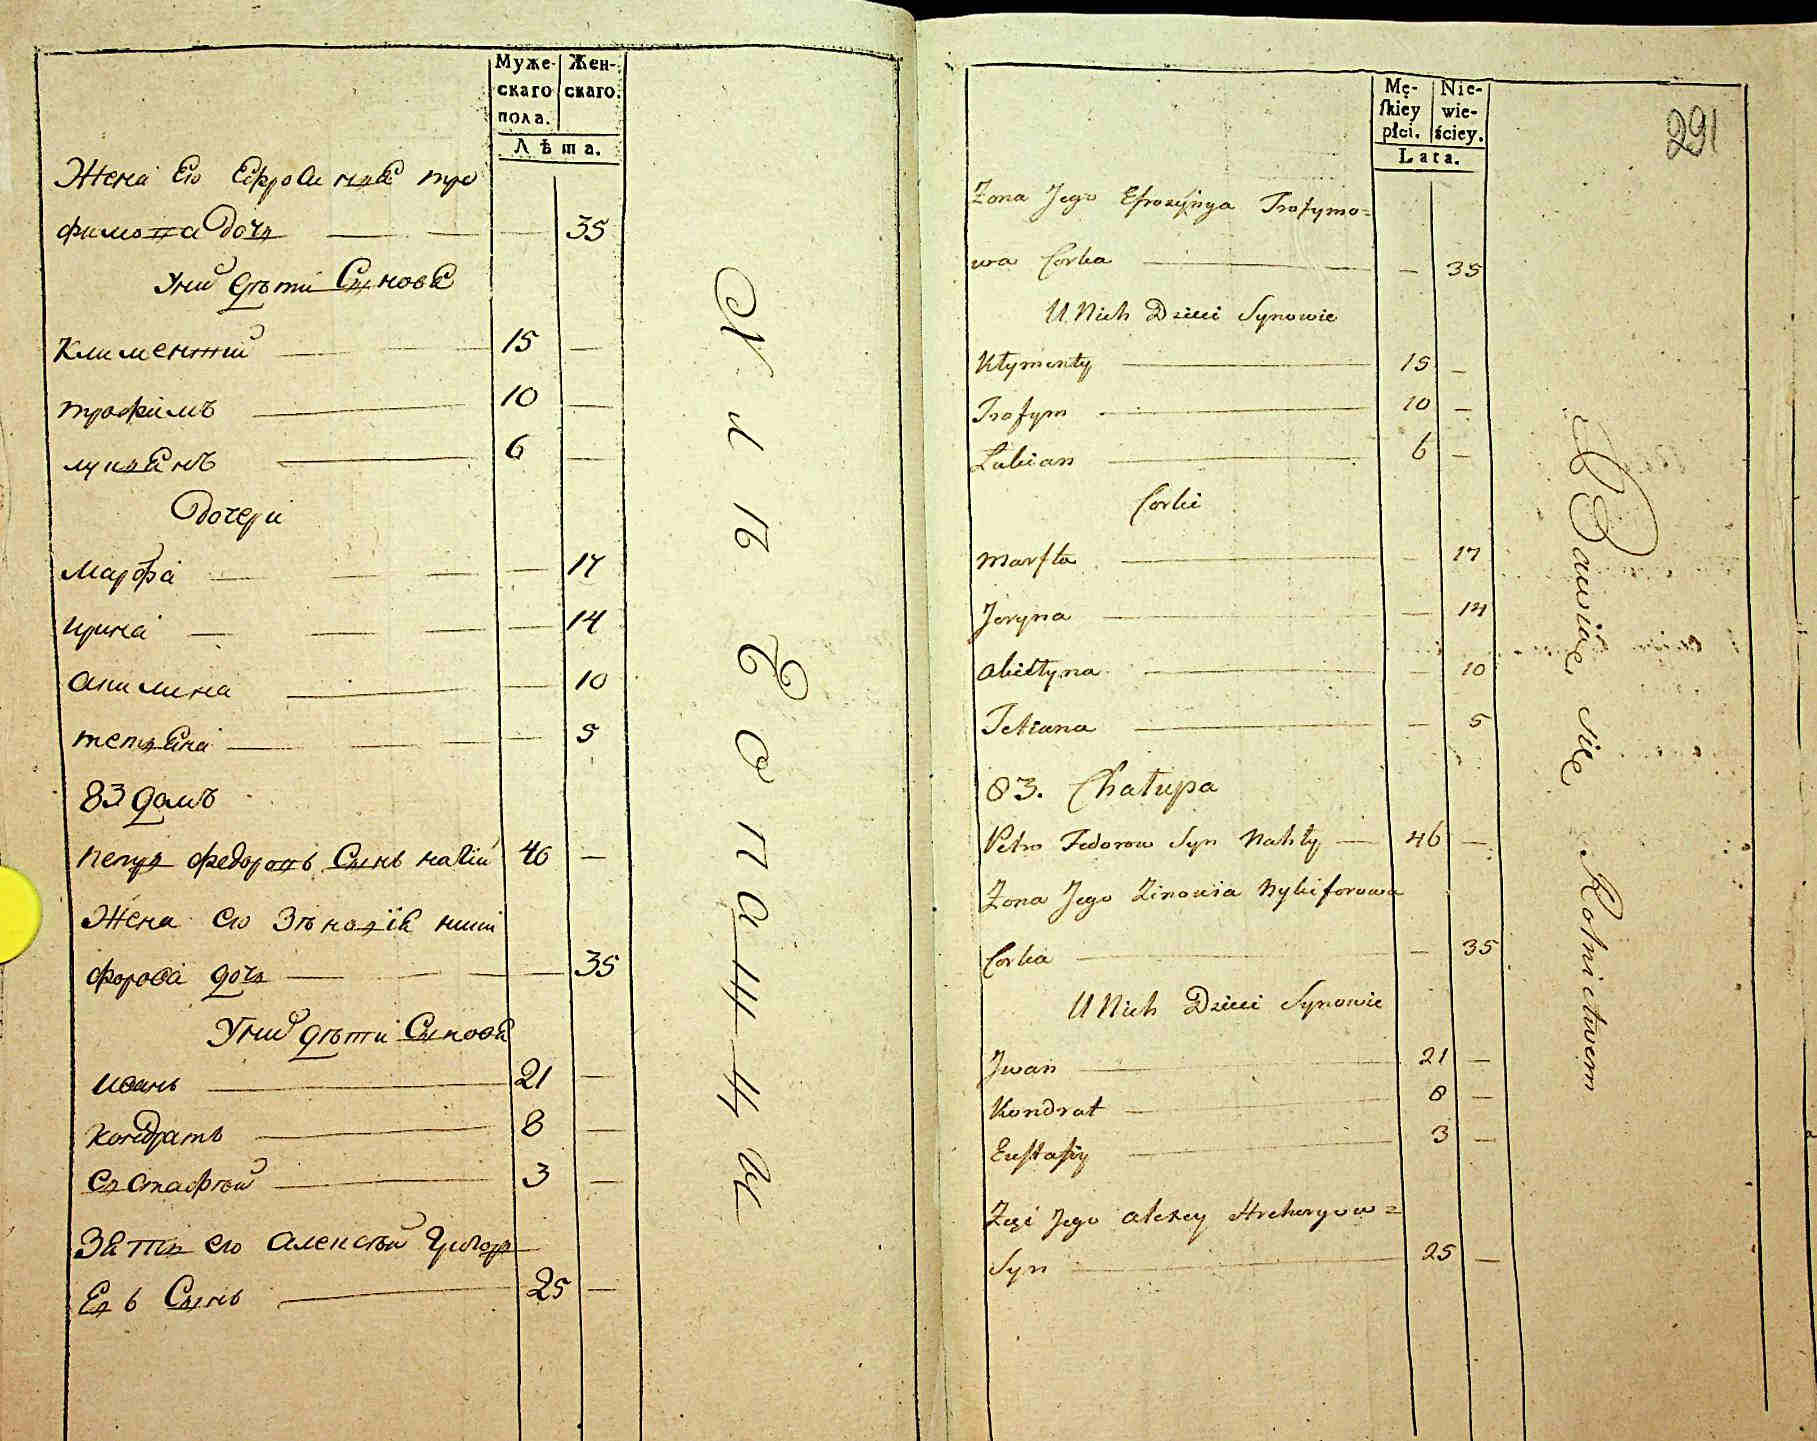 Муже-
скаго
пола.
Жен-
скаго.
Лѣта.
Жена Его Ефросинія тро
фимова дочь 35
У них дѣти Синове
Климентий 15
трофимъ 10
лукіянъ 6
дочери
Марфа 17
ирина 14
акилина 10
тетяна 5
83 домъ
петръ федоровъ Синъ нагий 46
Жена Его Зѣновія ники
форова дочь 35
У них дѣти Синове
иванъ 21
кондратъ 8
Евстафий 3
Зять его алексѣй Григор
Евъ Синъ 25
Mę-
ſkiey
płci.
Nie-
wie-
ściey.
Lata.
291
Żona Jego Efrozynya Trofymo=
wa Corka 35
U Nich Dzieci Synowie
Kłymenty 15
Trofym 10
Łukian 6
Corki
Marfta 17
Jeryna 14
Akiłtyna 10
Tetiana 5
83. Chałupa
Petro Fedorow Syn Nahły 46
Żona Jego Zinowia Nykiforowa
Corka 35
U Nich Dzieci Synowie
Jwan 21
Kondrat 8
Euſtafiy 3
Zęć Jego Alexey Hrehoryow=
Syn 25
Bawiąc się Rolnictwem